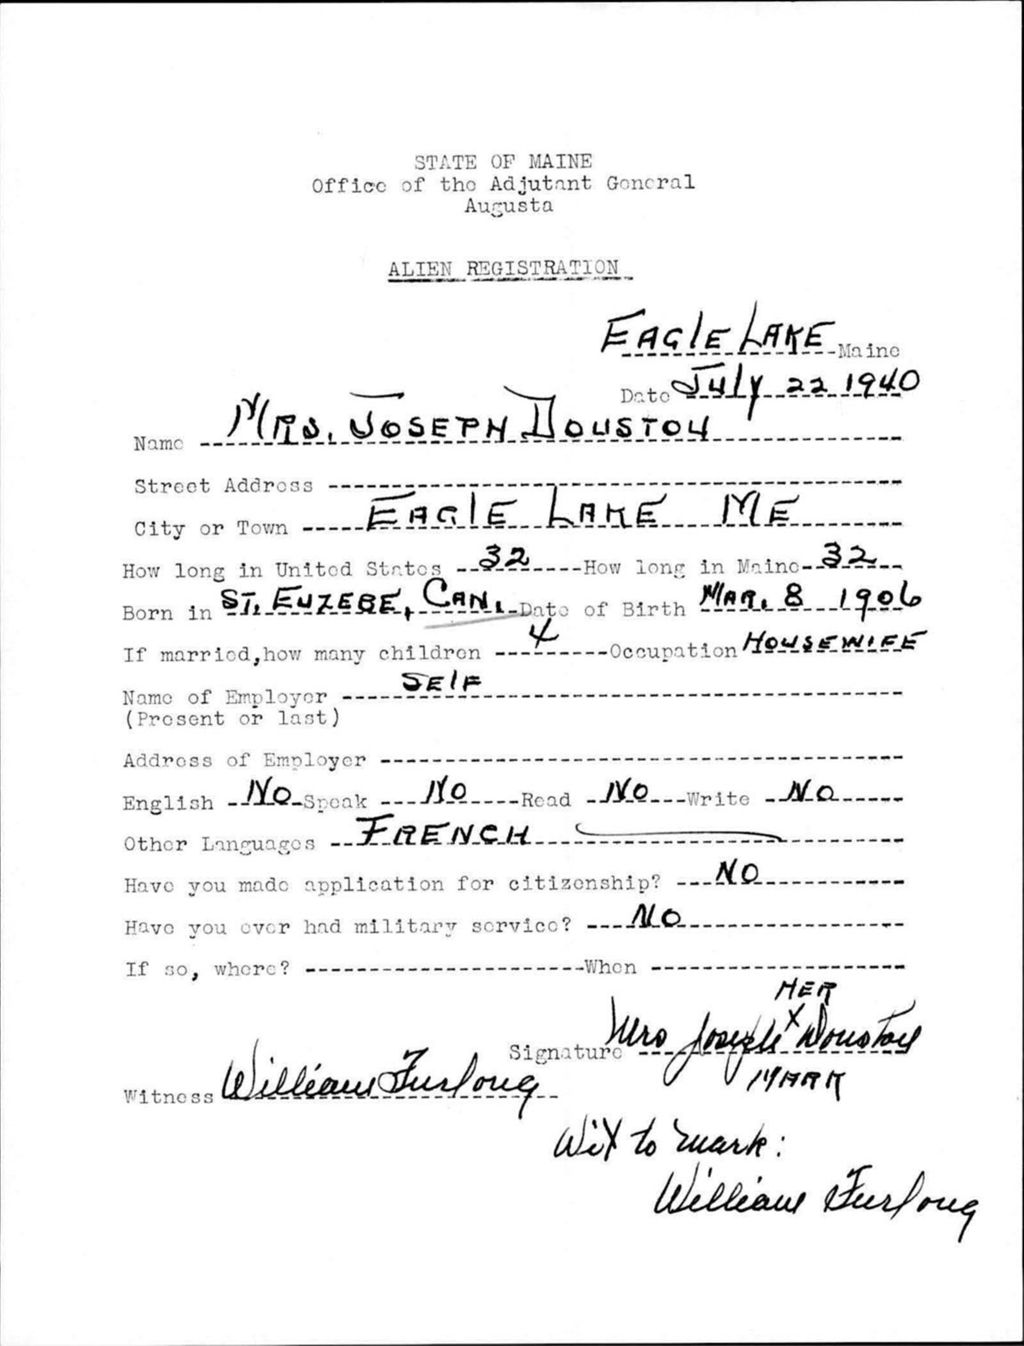 STATE OF MAINE
Office of the Adjutant General
Augusta
ALIEN REGISTRATION
EAGLE LAKE Maine
Date JULY 22 1940
Name MRS. JOSEPH DOUSTOU
Street Address
City or Town EAGLE LAKE ME
How long in United States 32 How long in Maine 32
Born in ST. EUZEBE, CAN. Date of Birth MAR. 8 1906
If married, how many children 4 Occupation HOUSEWIFE
Name of Employer SELF
(Present or last)
Address of Employer
English NO Speak NO Read NO Write NO
Other Languages FRENCH
Have you made application for citizenship? NO
Have you ever had military service? NO
If so, where? When
HER
Signature Mrs Joseph X Doustou
MARK
Witness William Furlong
Wit to mark:
William Furlong